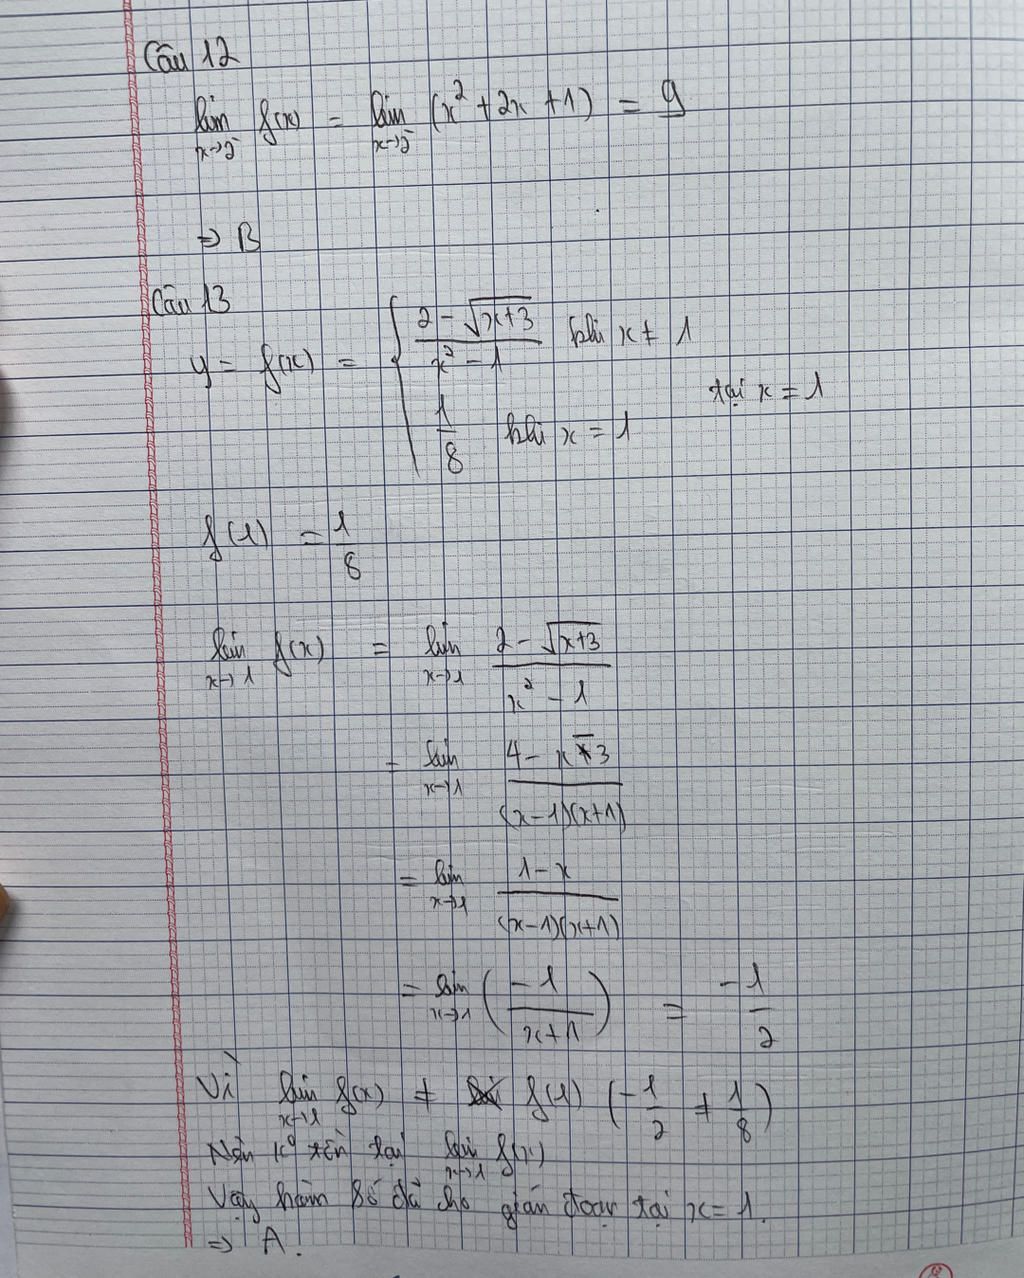 Câu 12
lim x→2⁻ f(x) = lim x→2⁻ (x² + 2x + 1) = 9
⇒ B
Câu 13
y = f(x) = { (2 - √(x+3)) / (x² - 1) khi x ≠ 1
1/8 khi x = 1 tại x = 1
f(1) = 1/8
lim x→1 f(x) = lim x→1 (2 - √(x+3)) / (x² - 1)
= lim x→1 (4 - x - 3) / ((x-1)(x+1))
= lim x→1 (1 - x) / ((x-1)(x+1))
= lim x→1 (-1 / (x+1)) = -1/2
Vì lim x→1 f(x) ≠ f(1) (-1/2 ≠ 1/8)
Nên k⁰ tồn tại lim x→1 f(x)
Vậy hàm số đã cho gián đoạn tại x = 1.
⇒ A.